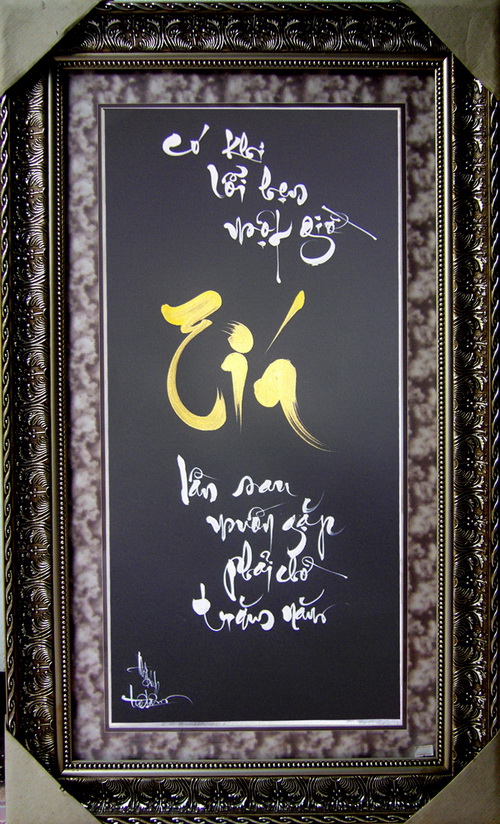 Có khi
lỗi hẹn
một giờ
Tín
lần sau
muốn gặp
phải chờ
trăm năm